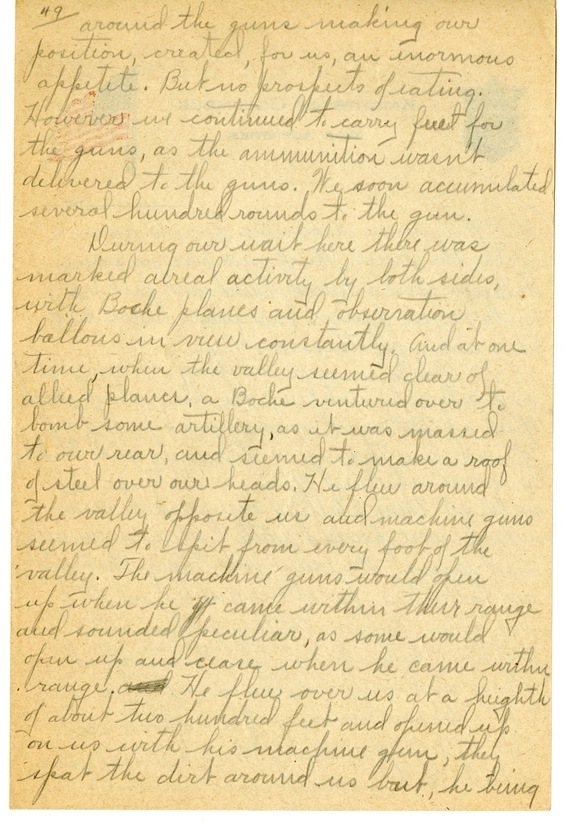 49
around the guns making our
position, created, for us, an enormous
appetite. But no prospects of eating.
However we continued to carry feed for
the guns, as the ammunition wasn't
delivered to the guns. We soon accumulated
several hundred rounds to the gun.
During our wait here there was
marked aireal activity by both sides,
with Boche planes and observation
ballons in view constantly. And at one
time, when the valley seemed clear of
allied planes, a Boche ventured over to
bomb some artillery, as it was massed
to our rear, and seemed to make a roof
of steel over our heads. He flew around
the valley opposite us and machine guns
seemed to spit from every foot of the
valley. The machine guns would open
up when he came within their range
and sounded peculiar, as some would
open up and cease when he came within
range. He flew over us at a heighth
of about two hundred feet and opened up
on us with his machine gun, they
spat the dirt around us but, he being